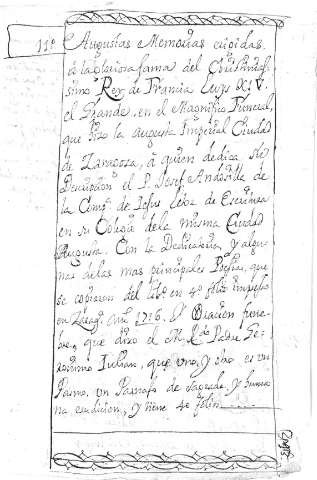 11º. Augustas Memorias erigidas
á la gloriosa fama del Christianis-
simo Rey de Francia Luys XIV.
el Grande, en el Magnifico Funeral,
que hizo la Augusta Imperial Ciudad
de Zaragoza, á quien dedica su
Descripcion el P. Josef Andosilla de
la Compª. de Jesus de Escritura
en su Colegio de la misma Ciudad
Augusta. Con la Dedicatoria, y algu-
nas de las mas principales Poesias, que
se copiaron del libº. en 4º. impreso
en Zarag. 1716. Oracion fune-
bre, que dixo el M. Rdo. Padre Ge-
ronimo Julian, que uno, y otro es un
Pasmo, un de sagrada, y huma-
na erudicion, y tiene 40 folios